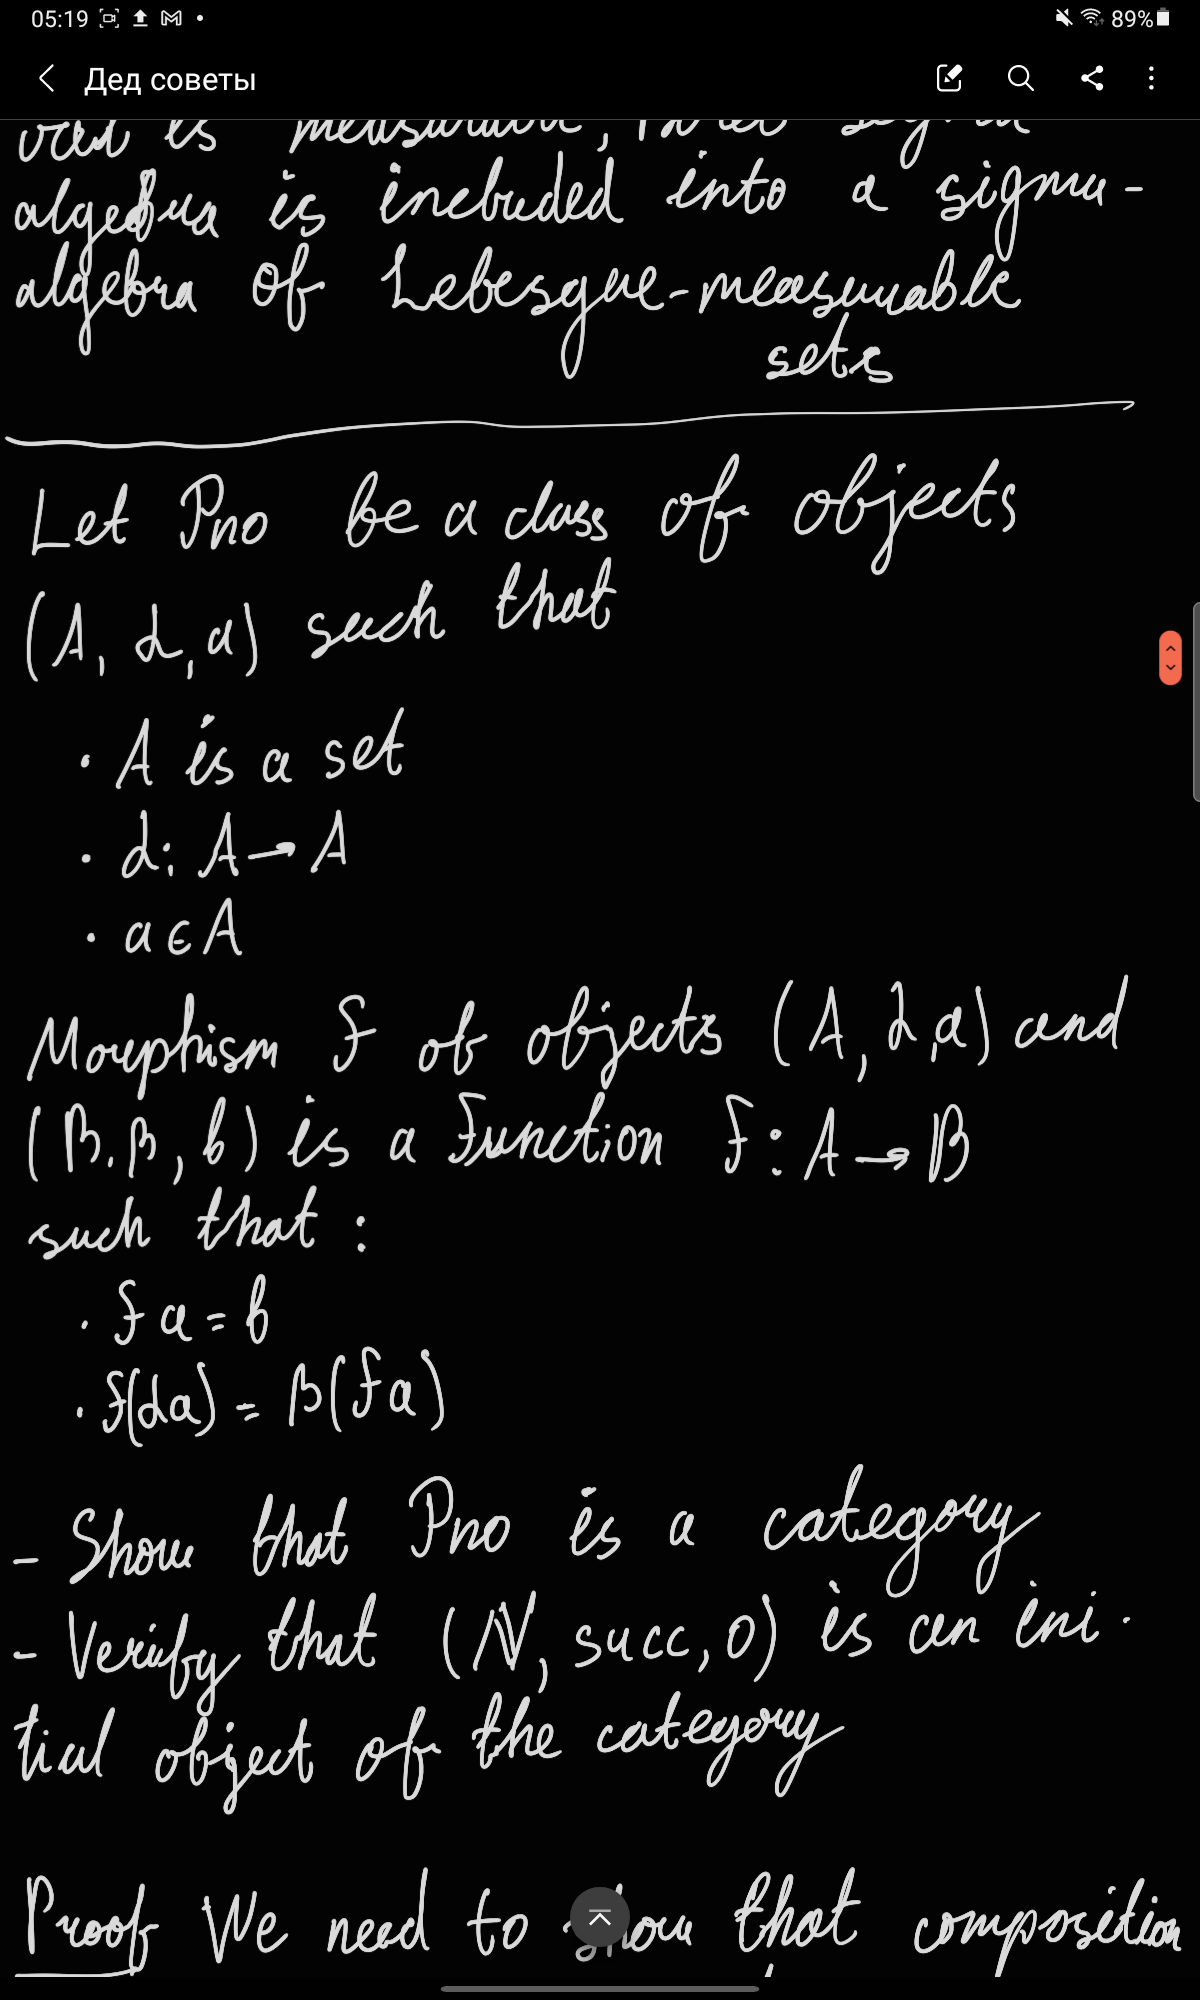 05:19
89%
Дед советы
algebra is included into a sigma-
algebra of Lebesgue-measurable
sets
Let Pno be a class of objects
(A, α, a) such that
• A is a set
• α: A → A
• a ∈ A
Morphism f of objects (A, α, a) and
(B, β, b) is a function f: A → B
such that :
• fa = b
• f(αa) = β(fa)
- Show that Pno is a category
- Verify that (N, succ, 0) is an ini-
tial object of the category
Proof We need to show that composition